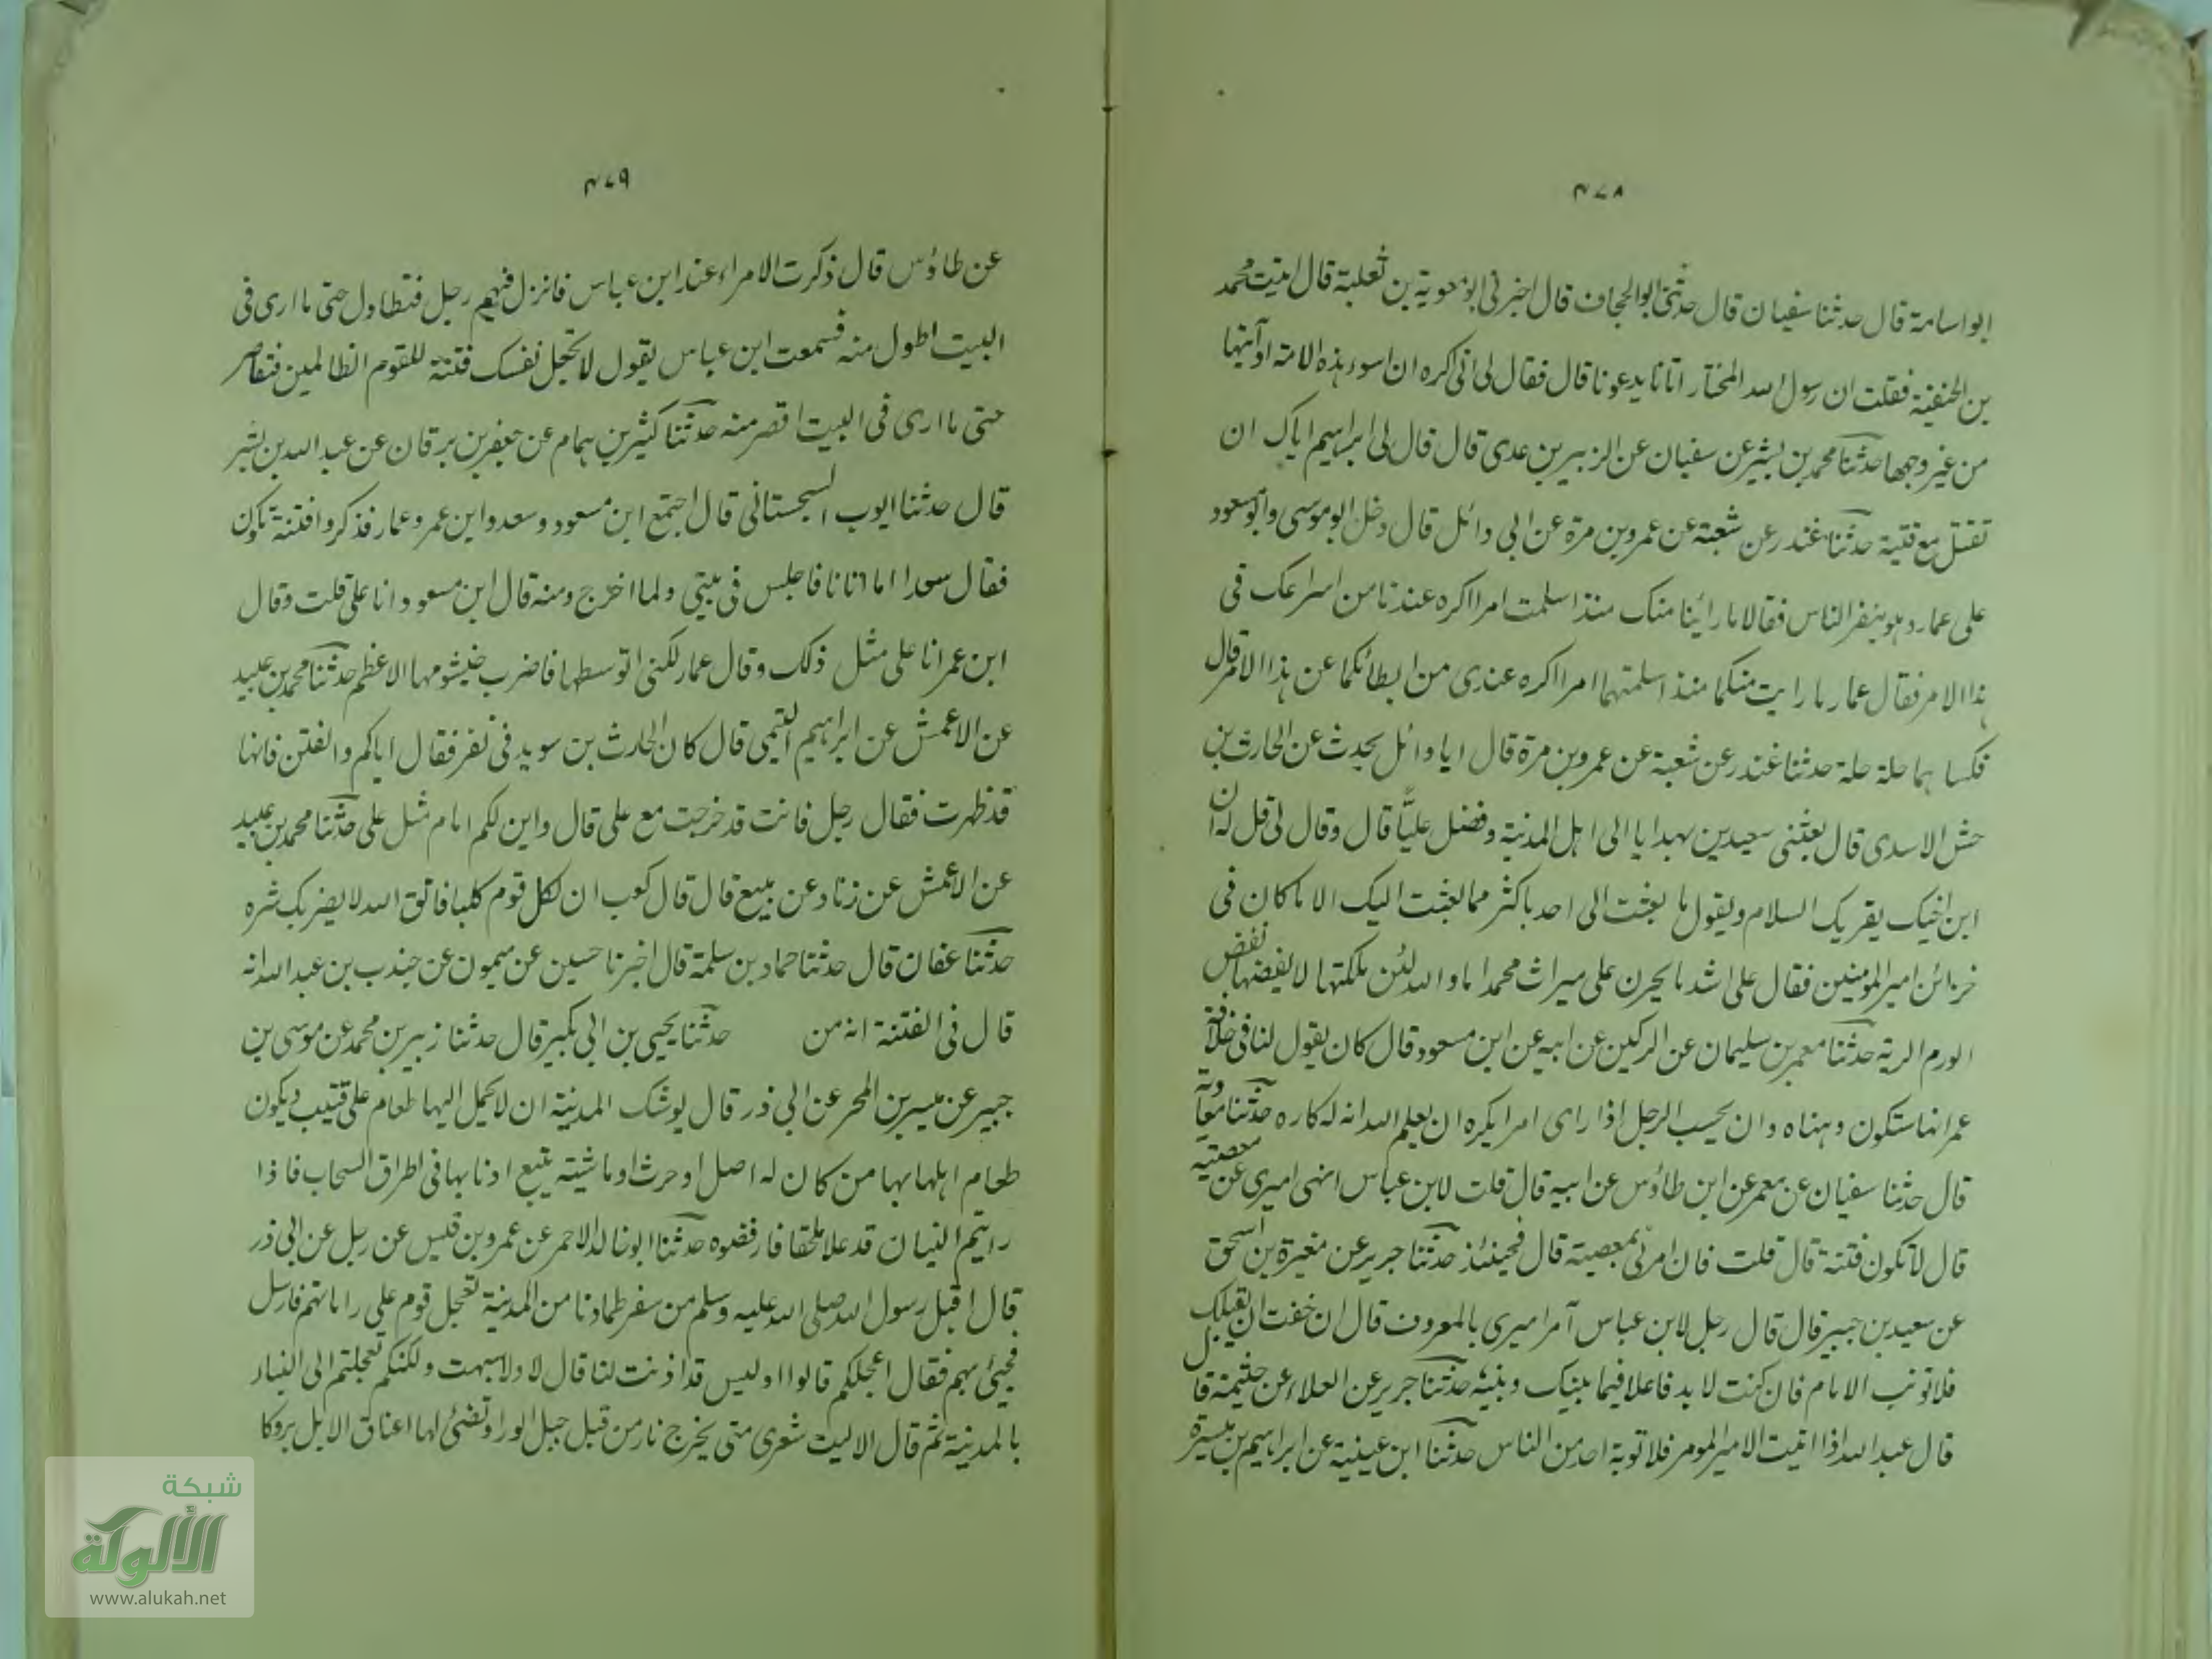 ٤٧٨
ابو اسامة قال حدثنا سفيان قال حدثنى ابو الجحاف قال اخبرنى ابو معوية بن ثعلبة قال اتيت محمد
بن الحنفية فقلت ان رسول الله المختار اتانا يدعونا قال فقال لى انى اكره ان اسوء هذه الامة او آتيها
من غير وجهها حدثنا محمد بن بشير عن سفيان عن الزبير بن عدى قال قال لى ابراهيم اياك ان
تقتل مع فتية حدثنا غندر عن شعبة عن عمرو بن مرة عن ابى وائل قال دخل ابو موسى وابو مسعود
على عمار وهو ينفر الناس فقالا ما رأينا منك منذ اسلمت امرا اكره عندنا من اسراعك فى
هذا الامر فقال عمار ما رايت منكما منذ اسلمتهما امرا اكره عندى من ابطائكما عن هذا الامر قال
فكساهما حلة حلة حدثنا غندر عن شعبة عن عمرو بن مرة قال ايا وائل يحدث عن الحارث بن
حش الاسدى قال بعثنى سعيد بن بهدايا الى اهل المدنية وفضل عليًّا قال وقال لى قل له ان
ابن اخيك يقريك السلام ويقول ما بعثت الى احد باكثر مما بعثت اليك الا ما كان فى
خزائن امير المومنين فقال على اشد ما يحرن على ميراث محمد اما والله لئن ملكتها لا نفيضها نفض
الورم الربة حدثنا معمر بن سليمان عن الركين عن ابيه عن ابن مسعود قال كان يقول لنا فى خلافة
عمر انها ستكون وهناه وان بحيسب الرجل اذا راى امرا يكره ان يعلم الله انه له كاره حدثنا معاوية
قال حدثنا سفيان عن معمر عن ابن طاؤس عن ابيه قال قلت لابن عباس انهى اميرى عن معصية
قال لا تكون فتنة قال قلت فان امرنى بمعصية قال فحينئذ حدثنا جرير عن مغيرة بن اسحق
عن سعيد بن جبير قال قال رجل لابن عباس آمر اميرى بالمعروف قال ان خفت ان يقبلك
فلا تونب الامام فان كنت لا بد فاعلا فيما بينك وبينه حدثنا جرير عن العلاء عن خثيمة قال
قال عبد الله اذا اتيت الامير المومر فلا توبة احد من الناس حدثنا ابن عيينة عن ابراهيم بن ميسرة
٤٧٩
عن طاؤس قال ذكرت الامراء عند ابن عباس فانزل فيهم رجل فتطاول حتى ما ارى فى
البيت اطول منه فسمعت ابن عباس يقول لا تجعل نفسك فتنة للقوم الظالمين فتقاصر
حتى ما ارى فى البيت اقصر منه حدثنا كثير بن همام عن جعفر بن برقان عن عبد الله بن بشير
قال حدثنا ايوب السجستانى قال اجتمع ابن مسعود وسعد وابن عمر وعمار فذكروا فتنة تكون
فقال سعد اما انا فاجلس فى بيتى ولما اخرج ومنه قال ابن مسعود انا على قلت وقال
ابن عمر انا على مثل ذلك وقال عمار لكنى اتوسطها فاضرب خيشومها الاعظم حدثنا محمد بن عبيد
عن الاعمش عن ابراهيم التيمى قال كان الحارث بن سويد فى نفر فقال اياكم والفتن فانها
قد ظهرت فقال رجل فانت قد خرجت مع على قال واين لكم امام مثل على حدثنا محمد بن عبيد
عن الاعمش عن زناد عن بييع قال قال كعب ان لكل قوم كلبا فاتق الله لا يضربك شره
حدثنا عفان قال حدثنا حماد بن سلمة قال اخبرنا حسين عن ميمون عن جندب بن عبد الله انه
قال فى الفتنة انه من حدثنا يحيى بن ابى بكير قال حدثنا زبير بن محمد عن موسى بن
جبير عن ميسر بن المحر عن ابى ذر قال يوشك المدينة ان لا يحمل اليها طعام على قتيب ويكون
طعام اهلها بها من كان له اصل او حرث او ماشية يتبع اذنابها فى اطراق السحاب فاذا
رايتم النبيان قد علا ملحقا فارفضوه حدثنا ابو خالد الاحمر عن عمرو بن قيس عن رجل عن ابى ذر
قال اقبل رسول الله صلى الله عليه وسلم من سفر فلما دنا من المدينة تعجل قوم على راياتهم فارسل
فجيئ بهم فقال اعجلكم قالوا اوليس قد اذنت لنا قال لا ولا سبهت ولكنكم تعجلتم الى النساء
بالمدينة ثم قال الا ليت شعرى متى يخرج نار من قبل جبل الورا وتضئ لها اعناق الابل بروكا
شبكة
الألوكة
www.alukah.net